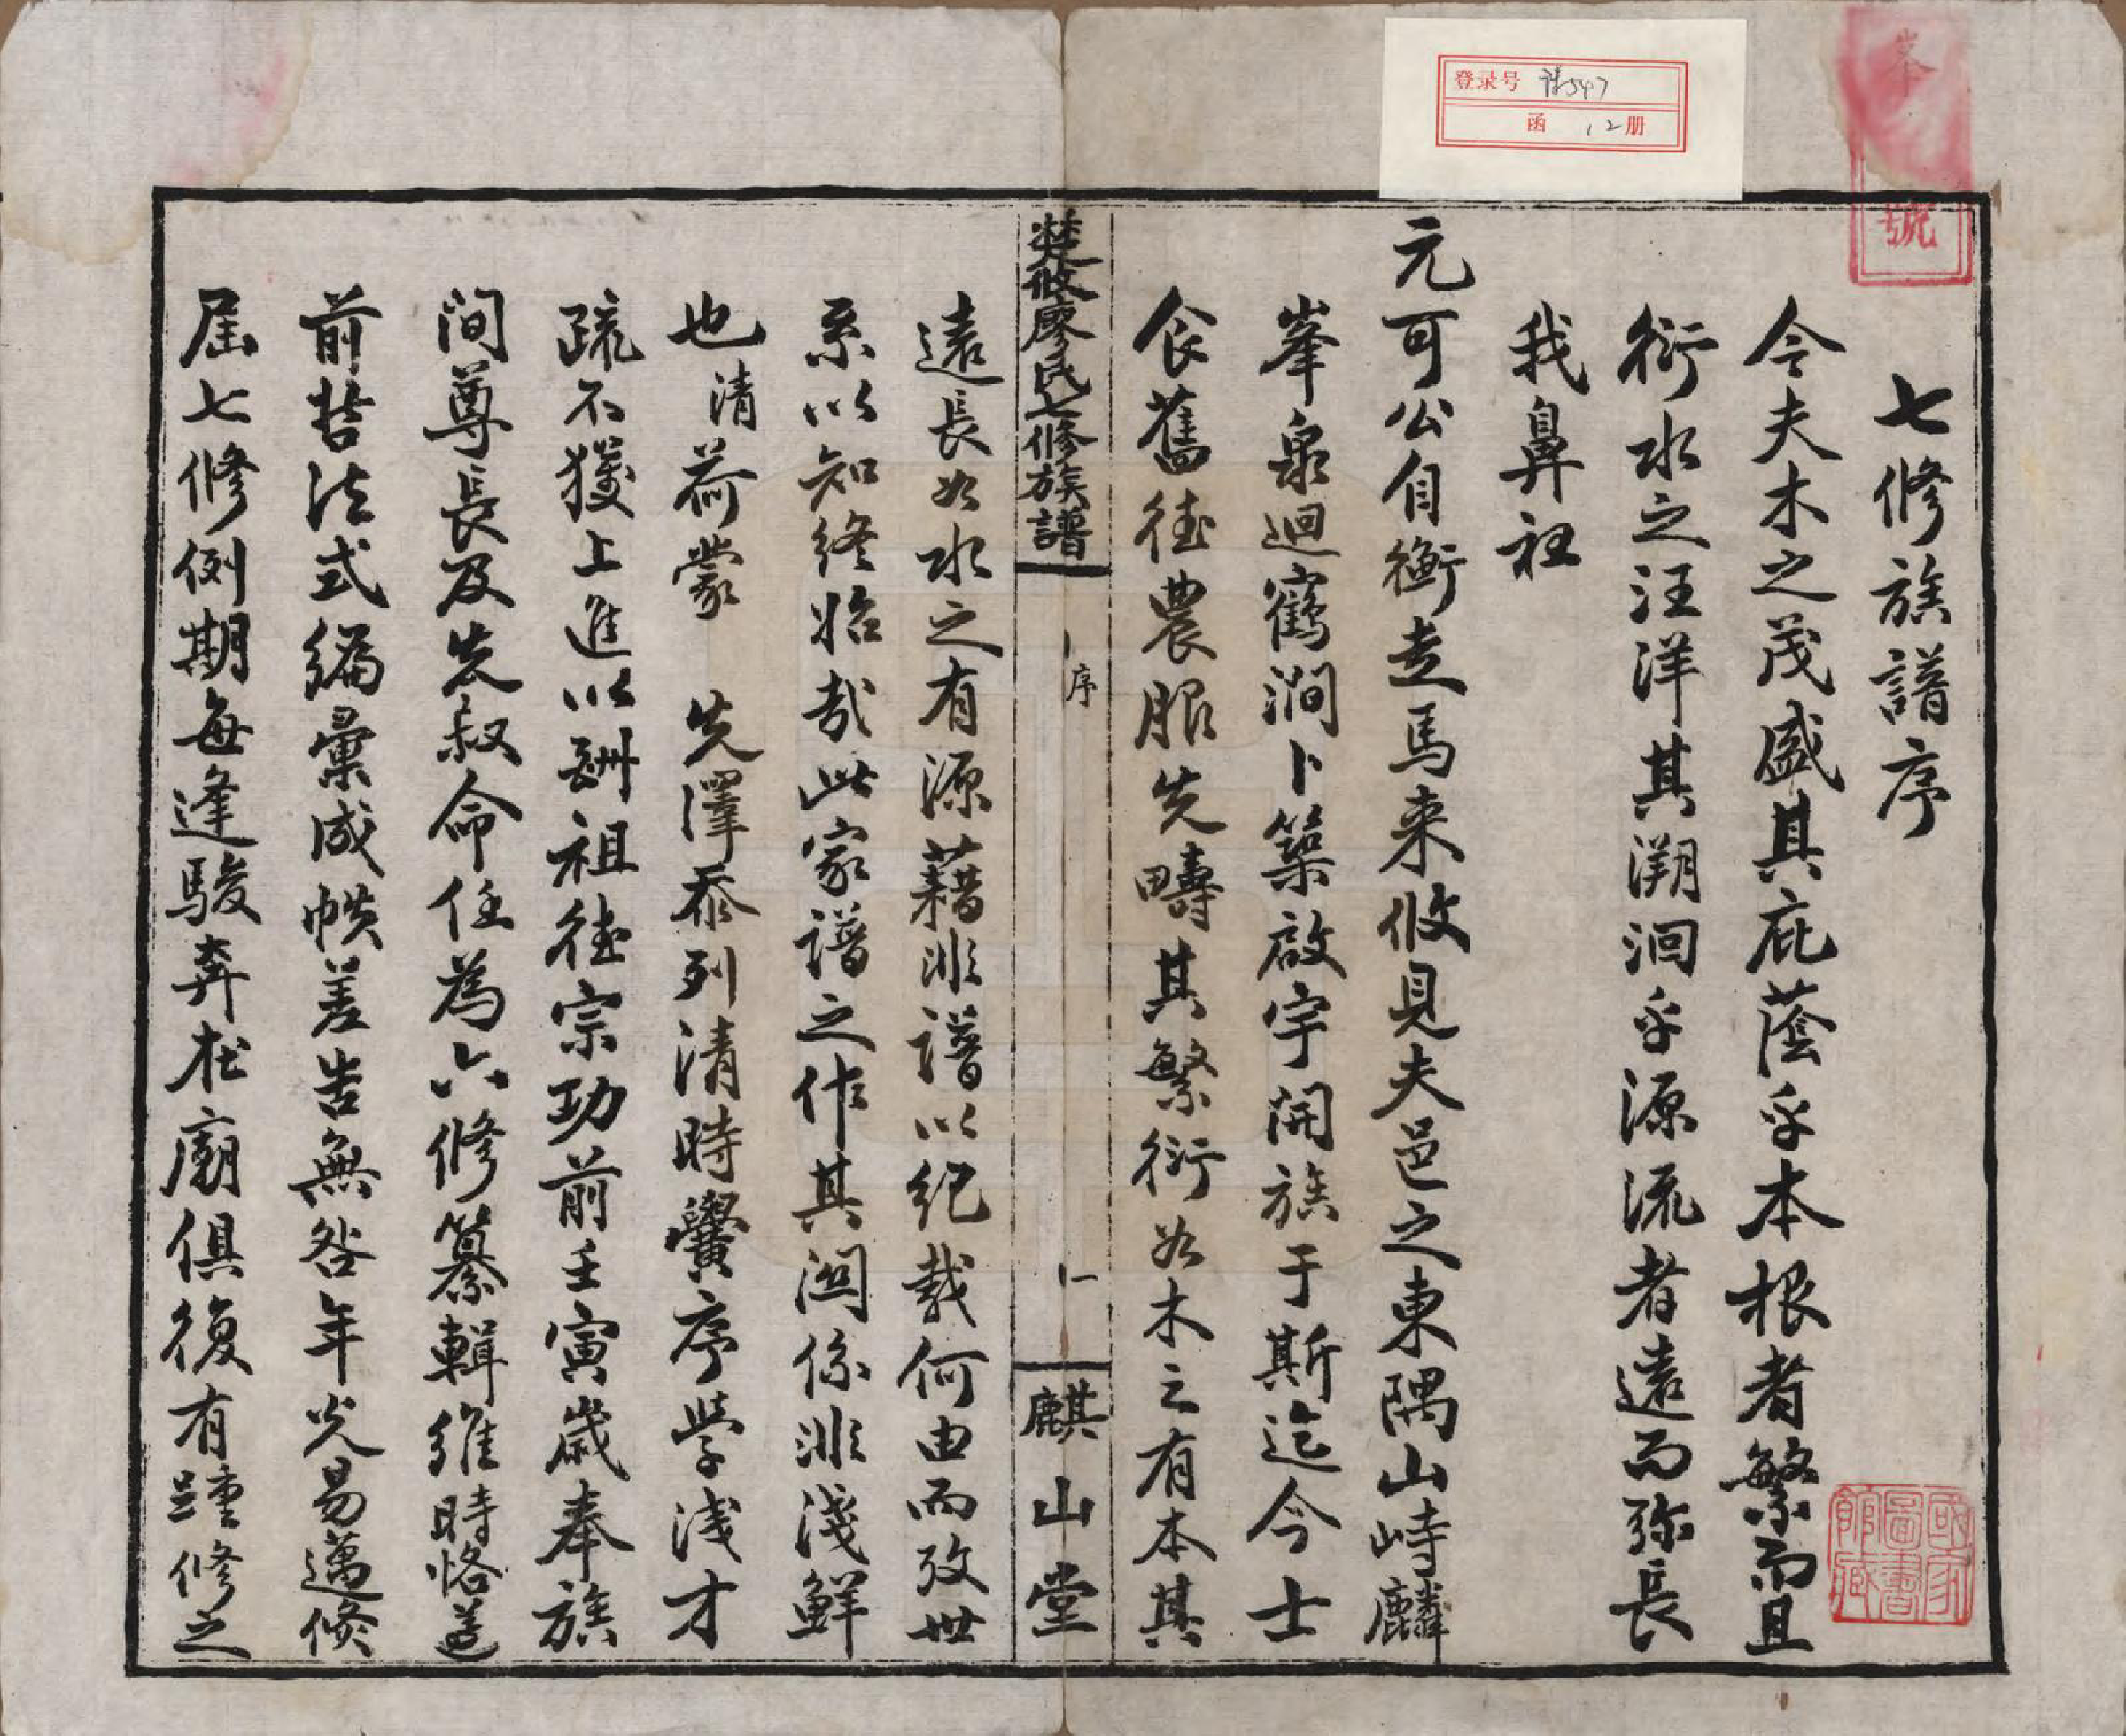 七修族譜序
今夫木之茂盛其庇蔭乎本根者繁而且
衍水之汪洋其溯洄乎源流者遠而弥長
我鼻祖
元可公自衡走馬來攸見夫邑之東隅山峙麟
峯泉迴鶴澗卜築啟宇開族于斯迄今士
食舊德農服先疇其繁衍如木之有本其
楚攸廖氏七修族譜
序
一
麒山堂
遠長如水之有源藉非譜以紀載何由而攷世
系以知終始哉此家譜之作其関係非淺鮮
也清荷蒙 先澤忝列清時黌序学浅才
疏不獲上進以酬祖德宗功前壬寅歲奉族
间尊長及先叔命任為六修纂輯維時恪遵
前哲法式編彙成帙差告無咎年光易邁倏
屆七修例期每逢駿奔在廟俱復有踵修之
登录号 谱547
函 12册
號
國家圖書館藏